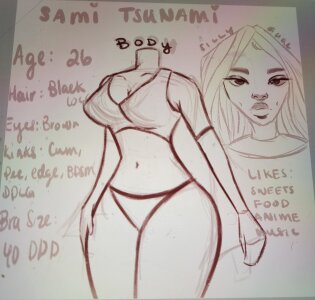 SAMI TSUNAMI
BODY
SILLY GURL
Age: 26
Hair: Black
Eyes: Brown
Kinks: Cum,
Pee, edge, BDSM
DDLG
Bra Size:
40 DDD
LIKES:
SWEETS
FOOD
ANIME
MUSIC